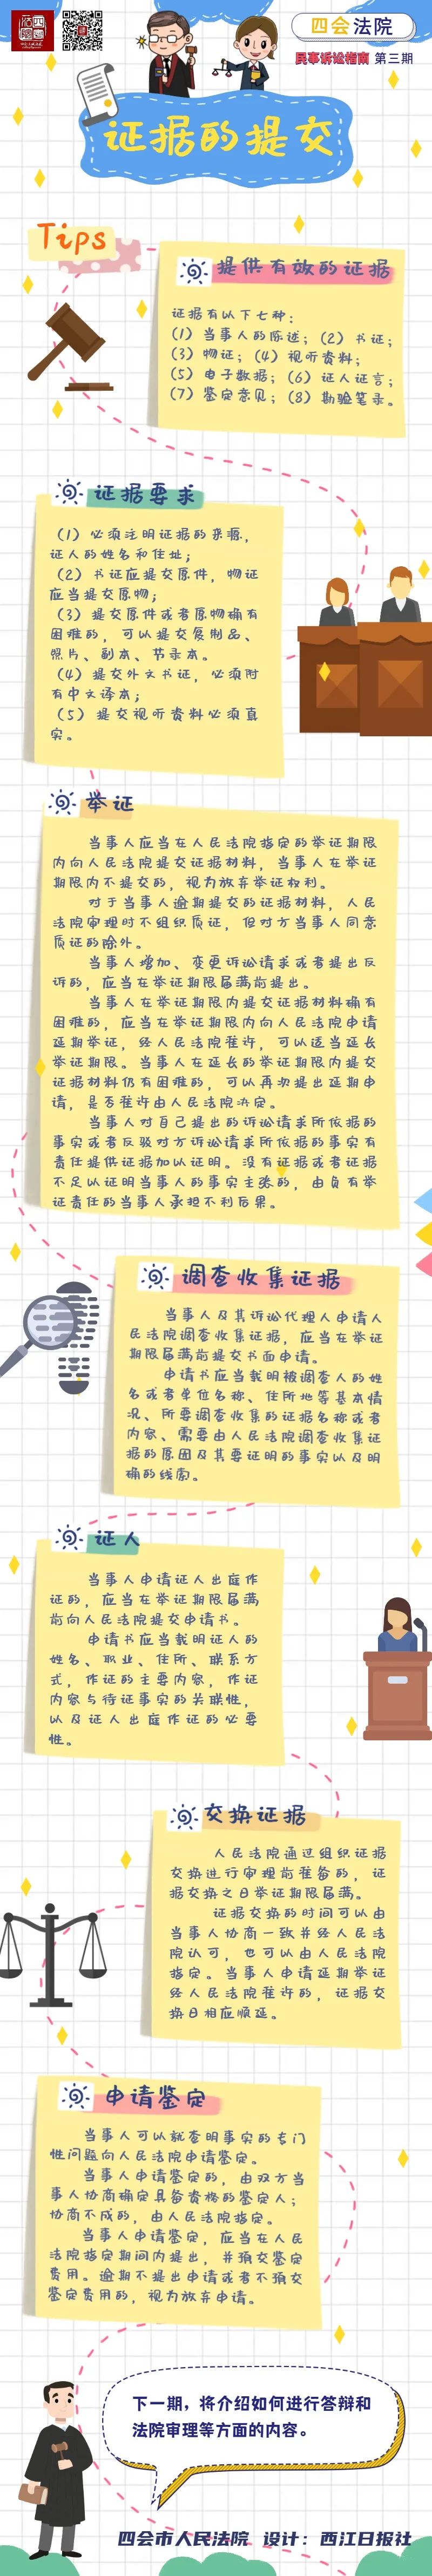 四会法院
民事诉讼指南 第三期
证据的提交
Tips
提供有效的证据
证据有以下七种：
（1）当事人的陈述；（2）书证；
（3）物证；（4）视听资料；
（5）电子数据；（6）证人证言；
（7）鉴定意见；（8）勘验笔录。
证据要求
（1）必须注明证据的来源，
证人的姓名和住址；
（2）书证应提交原件，物证
应当提交原物；
（3）提交原件或者原物确有
困难的，可以提交复制品、
照片、副本、节录本。
（4）提交外文书证，必须附
有中文译本；
（5）提交视听资料必须真
实。
举证
当事人应当在人民法院指定的举证期限
内向人民法院提交证据材料，当事人在举证
期限内不提交的，视为放弃举证权利。
对于当事人逾期提交的证据材料，人民
法院审理时不组织质证，但对方当事人同意
质证的除外。
当事人增加、变更诉讼请求或者提出反
诉的，应当在举证期限届满前提出。
当事人在举证期限内提交证据材料确有
困难的，应当在举证期限内向人民法院申请
延期举证，经人民法院准许，可以适当延长
举证期限。当事人在延长的举证期限内提交
证据材料仍有困难的，可以再次提出延期申
请，是否准许由人民法院决定。
当事人对自己提出的诉讼请求所依据的
事实或者反驳对方诉讼请求所依据的事实有
责任提供证据加以证明。没有证据或者证据
不足以证明当事人的事实主张的，由负有举
证责任的当事人承担不利后果。
调查收集证据
当事人及其诉讼代理人申请人
民法院调查收集证据，应当在举证
期限届满前提交书面申请。
申请书应当载明被调查人的姓
名或者单位名称、住所地等基本情
况、所要调查收集的证据名称或者
内容、需要由人民法院调查收集证
据的原因及其要证明的事实以及明
确的线索。
证人
当事人申请证人出庭作
证的，应当在举证期限届满
前向人民法院提交申请书。
申请书应当载明证人的
姓名、职业、住所、联系方
式，作证的主要内容，作证
内容与待证事实的关联性，
以及证人出庭作证的必要
性。
交换证据
人民法院通过组织证据
交换进行审理前准备的，证
据交换之日举证期限届满。
证据交换的时间可以由
当事人协商一致并经人民法
院认可，也可以由人民法院
指定。当事人申请延期举证
经人民法院准许的，证据交
换日相应顺延。
申请鉴定
当事人可以就查明事实的专门
性问题向人民法院申请鉴定。
当事人申请鉴定的，由双方当
事人协商确定具备资格的鉴定人；
协商不成的，由人民法院指定。
当事人申请鉴定，应当在人民
法院指定期间内提出，并预交鉴定
费用。逾期不提出申请或者不预交
鉴定费用的，视为放弃申请。
下一期，将介绍如何进行答辩和
法院审理等方面的内容。
四会市人民法院 设计：西江日报社